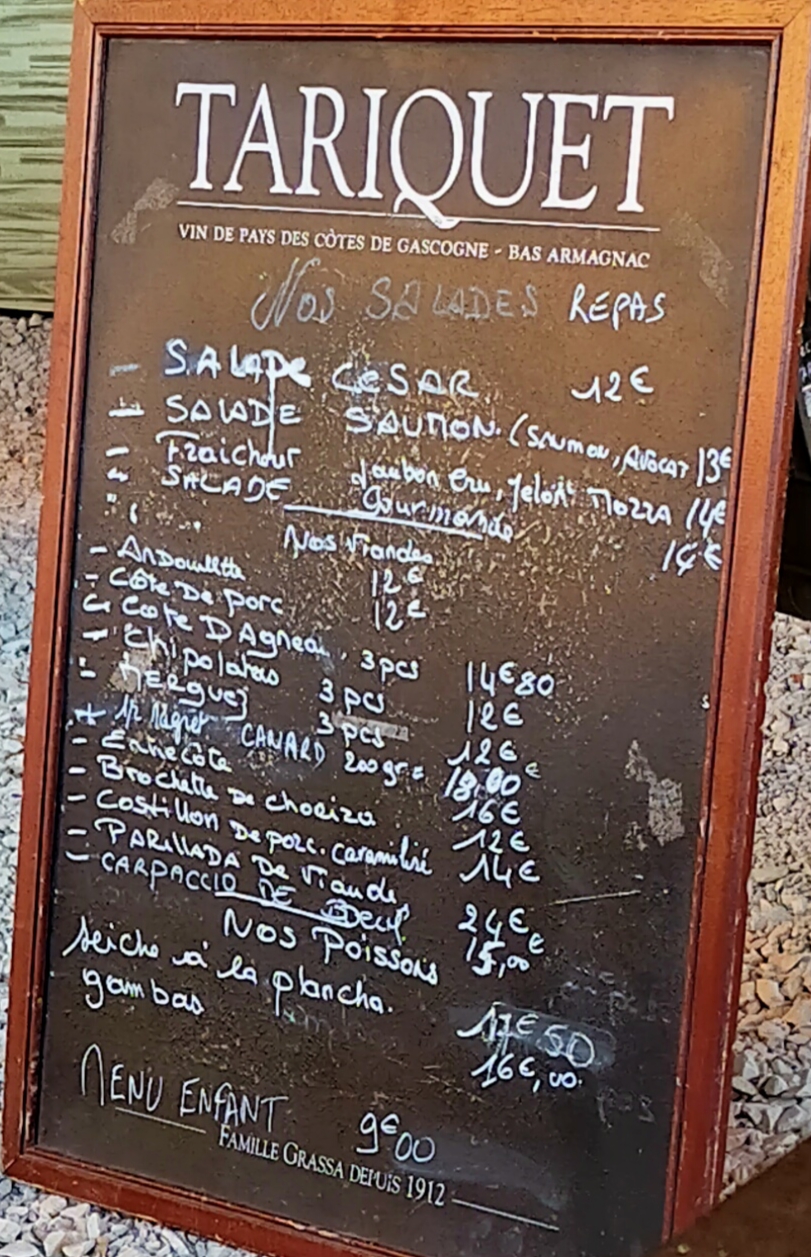 TARIQUET
VIN DE PAYS DES CÔTES DE GASCOGNE - BAS ARMAGNAC
Nos SALADES REPAS
- SALADE CeSAR 12€
- SALADE SAUMON (SAUMON, AVOCAT 13€
- Fraicheur Jambon Cru, Melon MOZZA 14€
- SALADE Gourmande
14€
Nos Viandes
- Andouillette 12€
- Côte De porc 12€
- Cote D'Agneau, 3pcs 14€80
- Chipolatas 3 pcs 12€
- Merguez 3 pcs 12€
+ 1/2 Magret CANARD 200gr= 18,00€
- Entrecôte 16€
- Brochette De Choriza 12€
- Costillon De porc. Caramélisé 14€
- PARILLADA De Viande 24€
- CARPACCIO DE Bœuf 15,00€
Nos Poissons
Seiche à la plancha. 17€50
gambas 16€,00
MENU ENFANT 9€00
FAMILLE GRASSA DEPUIS 1912